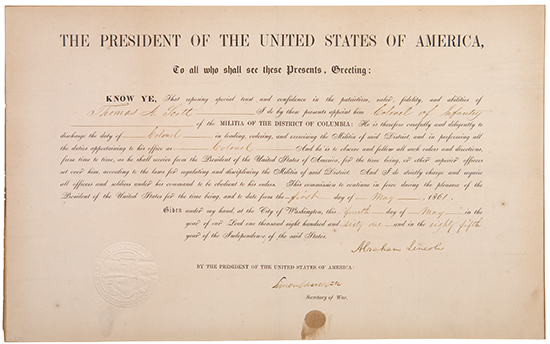 THE PRESIDENT OF THE UNITED STATES OF AMERICA,
To all who shall see these Presents, Greeting:
KNOW YE, That reposing special trust and confidence in the patriotism, valor, fidelity, and abilities of
Thomas A. Scott I do by these presents appoint him Colonel of Infantry
of the MILITIA OF THE DISTRICT OF COLUMBIA: He is therefore carefully and diligently to
discharge the duty of Colonel in leading, ordering, and exercising the Militia of said District, and in performing all
the duties appertaining to his office as Colonel And he is to observe and follow all such orders and directions,
from time to time, as he shall receive from the President of the United States of America, for the time being, or other superior officers
set over him, according to the laws for regulating and disciplining the Militia of said District. And I do strictly charge and require
all officers and soldiers under his command to be obedient to his orders. This commission to continue in force during the pleasure of the
President of the United States for the time being, and to date from the first day of May , 1861.
Given under my hand, at the City of Washington, this fourth day of May in the
year of our Lord one thousand eight hundred and sixty one and in the eighty fifth
year of the Independence of the said States.
Abraham Lincoln
BY THE PRESIDENT OF THE UNITED STATES OF AMERICA:
Simon Cameron
Secretary of War.